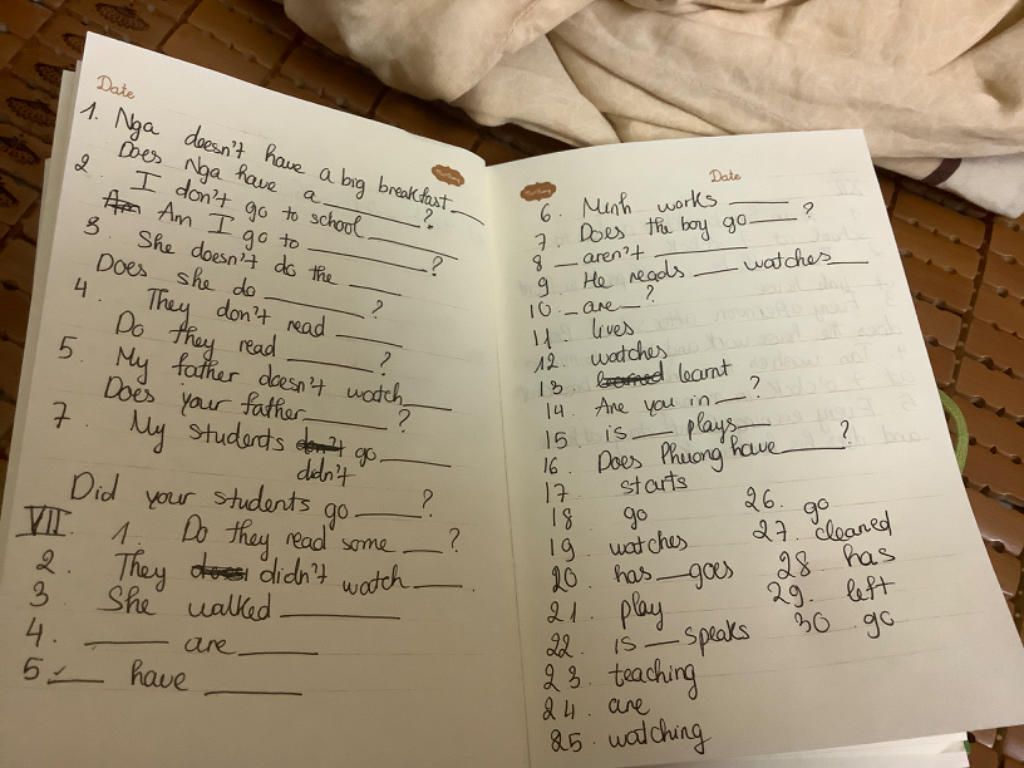 Date
1. Nga doesn't have a big breakfast ___
Does Nga have a ___?
2. I don't go to school ___
Am I go to ___?
3. She doesn't do the ___
Does she do ___?
4. They don't read ___
Do they read ___?
5. My father doesn't watch ___
Does your father ___?
7. My students go ___
didn't
Did your students go ___?
VII. 1. Do they read some ___?
2. They didn't watch ___.
3. She walked ___
4. ___ are ___
5 ___ have ___
Date
6. Minh works ___
7 Does the boy go ___?
8 _ aren't ___
9. He reads ___ watches ___
10. _ are _?
11. lives
12. watches
13 learnt
14. Are you in _?
15. is ___ plays ___
16. Does Phuong have ___?
17 starts
18. go
19. watches
20. has ___ goes
21. play
22. is ___ speaks
23. teaching
24. are
25. watching
26. go
27. cleaned
28 has
29. left
30. go